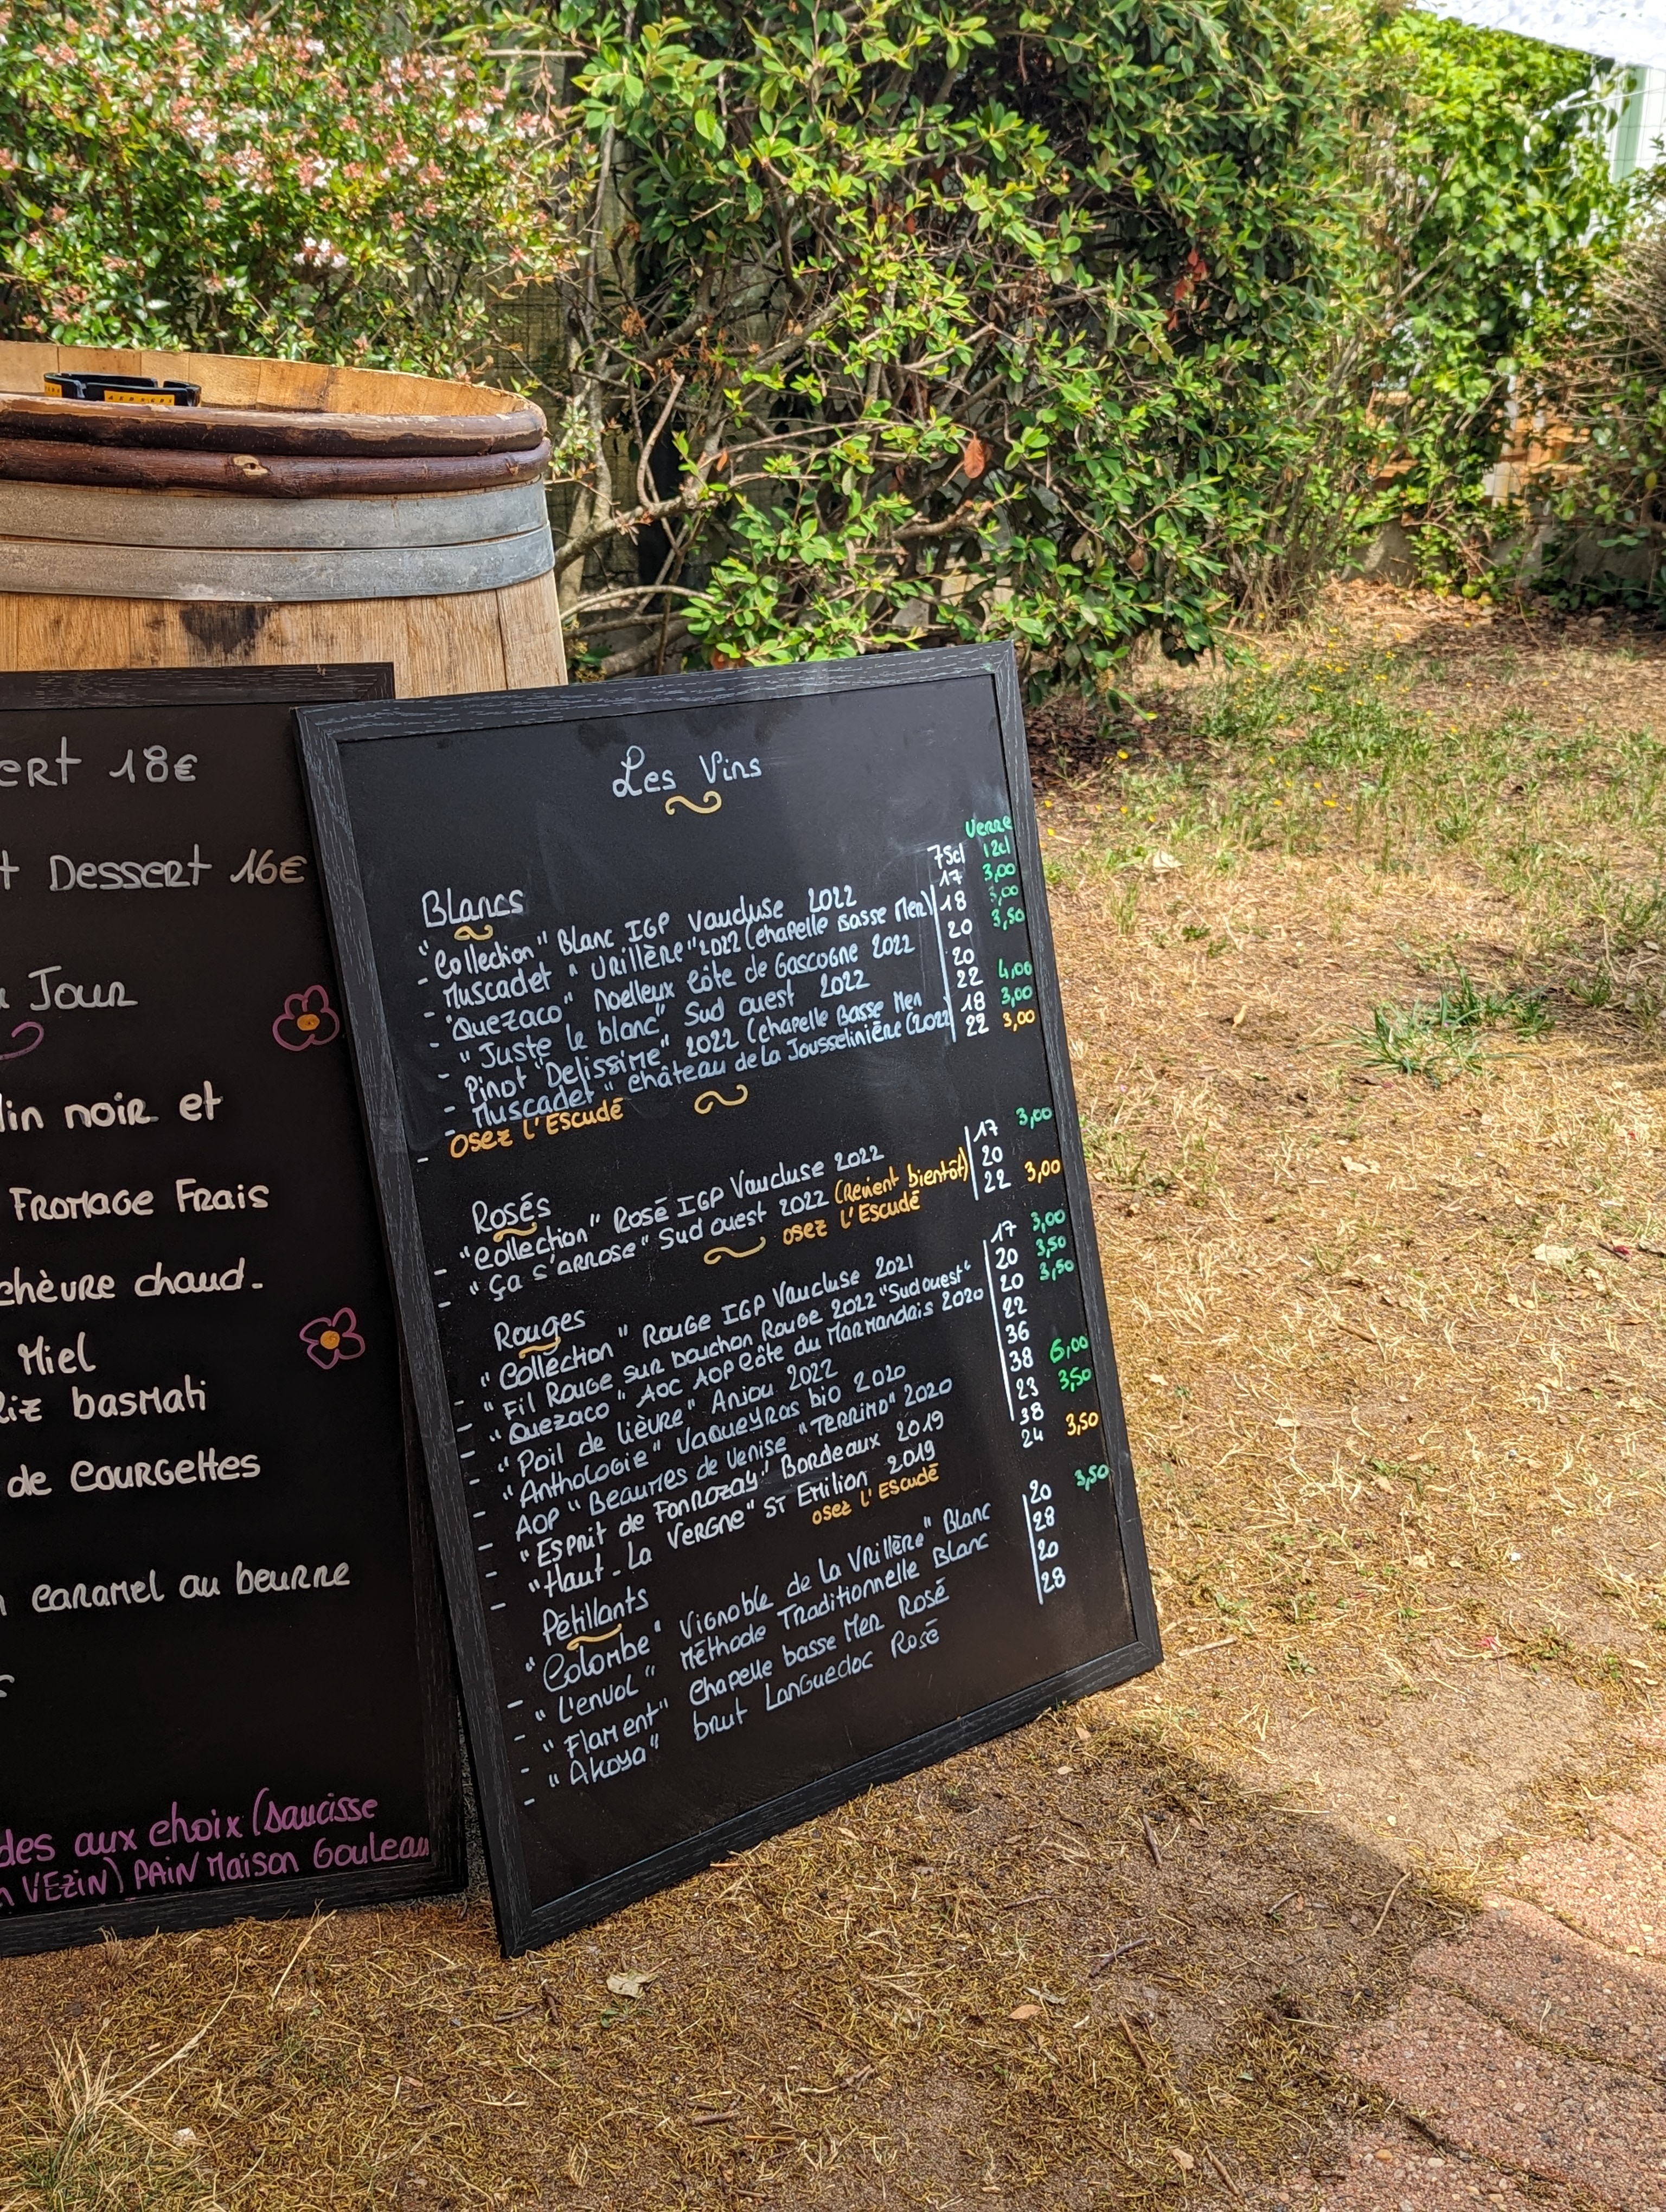 ert 18€
t Dessert 16€
Jour
lin noir et
Fromage Frais
chèvre chaud.
Miel
Riz basmati
de Courgettes
caramel au beurre
des aux choix (saucisse
VEZIN) PAIN Maison Gouleau
Les Vins
Verre
75cl 12cl
Blancs
- "Collection" Blanc IGP Vaucluse 2022 17 3,00
- Muscadet "Vrillère" 2022 (chapelle Basse Mer) 18 3,00
- "Quezaco" Moelleux Côte de Gascogne 2022 20 3,50
- "Juste le blanc" Sud ouest 2022 20
- Pinot "Delissime" 2022 (chapelle Basse Mer 22 4,00
- Muscadet" château de la Jousselinière (2022 18 3,00
- Osez l'Escudé 22 3,00
Rosés
- "Collection" Rosé IGP Vaucluse 2022 17 3,00
- "Ça s'arrose" Sud ouest 2022 (Revient bientôt) 20
osez l'Escudé 22 3,00
Rouges
- "Collection" Rouge IGP Vaucluse 2021 17 3,00
- "Fil Rouge sur bouchon Rouge 2022 "Sud ouest" 20 3,50
- "Quezaco" AOC AOP Côte du Marmandais 2020 20 3,50
- "Poil de lièvre" Anjou 2022 22
- "Anthologie" Vaqueyras bio 2020 36
- AOP "Beaumes de Venise "Terrimo" 2020 38 6,00
- "Esprit de Fonrozay" Bordeaux 2019 23 3,50
- "Haut-La Vergne" St Emilion 2019 38
osez l'Escudé 24 3,50
Pétillants
- "Colombe" Vignoble de la Vrillère" Blanc 20 3,50
- "L'envol" Méthode Traditionnelle Blanc 28
- "Flament" Chapelle basse Mer Rosé 20
- "Akoya" brut Languedoc Rosé 28